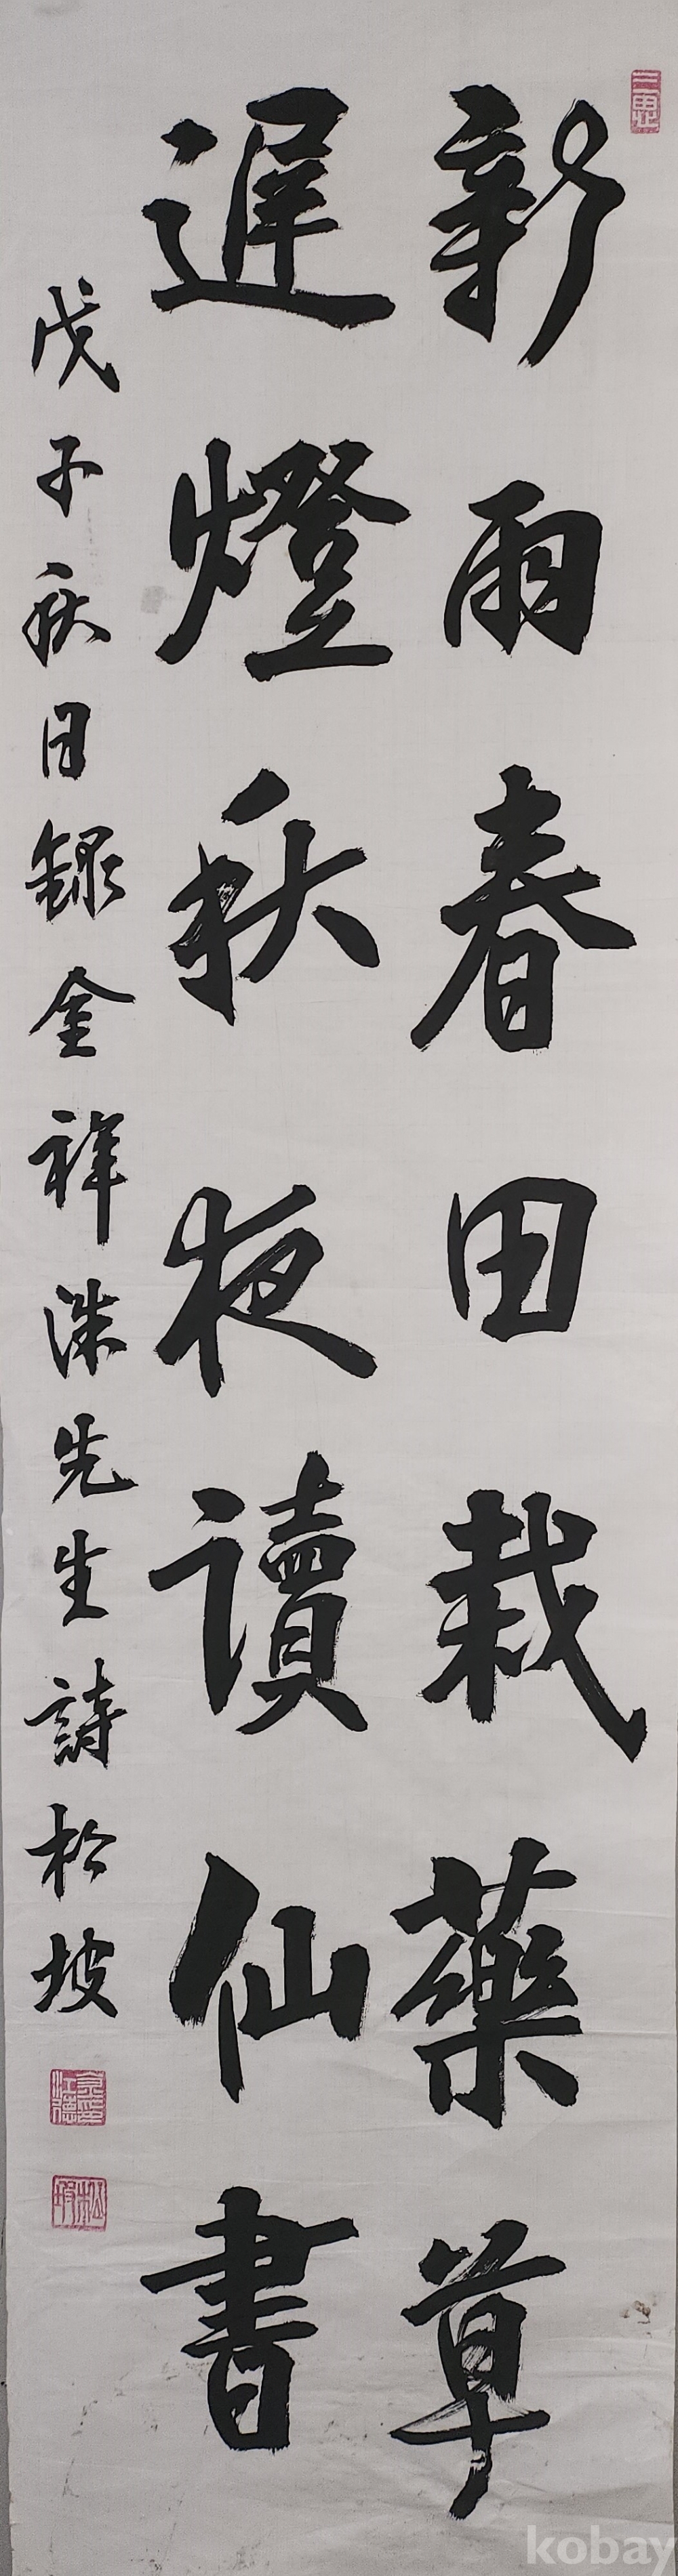 新雨春田栽藥草
遲燈秋夜讀仙書
戊子秋日錄金祥洙先生詩松坡
松坡
kobay